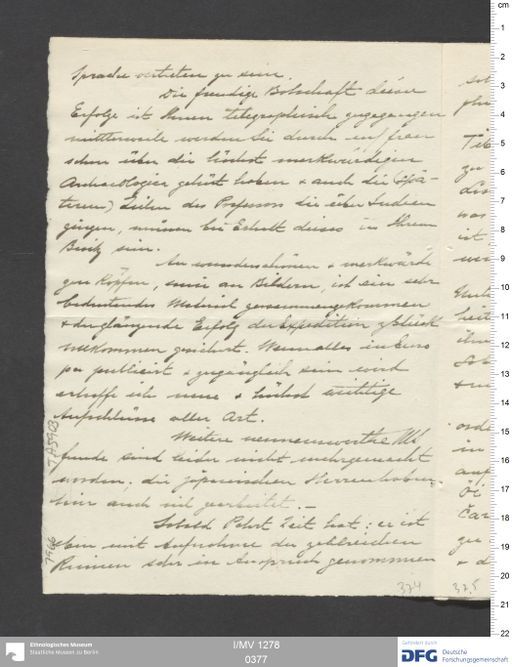 Sprache vertreten zu sein.
Die freudige Botschaft dieser
Erfolge ist Ihnen telegraphisch zugegangen
mittlerweile werden Sie durch
schon über die höchst merkwürdigen
Archaeologica gehört haben & auch die (spä-
teren) Zeilen des Professors die über Indien
gingen, müssen bei Erhalt dieses in Ihrem
Besitz sein.
An wunderschönen & merkwürdi
gen Köpfen, sowie an Bildern, ist ein sehr
bedeutendes Material zusammengekommen
& der glänzende Erfolg der Expedition glückt
vollkommen gesichert. Wenn alles in Euro
pa publicirt & zugänglich sein wird
erhoffe ich neue & höchst wichtige
Aufschlüsse aller Art.
Weitere nennenswerthe Ms
funde sind leider nicht mehr gemacht
worden; die japanischen Herren haben
hier auch viel gearbeitet. —
Sobald Pohrt Zeit hat: er ist
eben mit Aufnahme der zahlreichen
Ruinen sehr in Anspruch genommen
374
375
TA 5903
I/MV 1278
0377
Ethnologisches Museum
Staatliche Museen zu Berlin
Gefördert durch
DFG
Deutsche
Forschungsgemeinschaft
cm
1
2
3
4
5
6
7
8
9
10
11
12
13
14
15
16
17
18
19
20
21
22